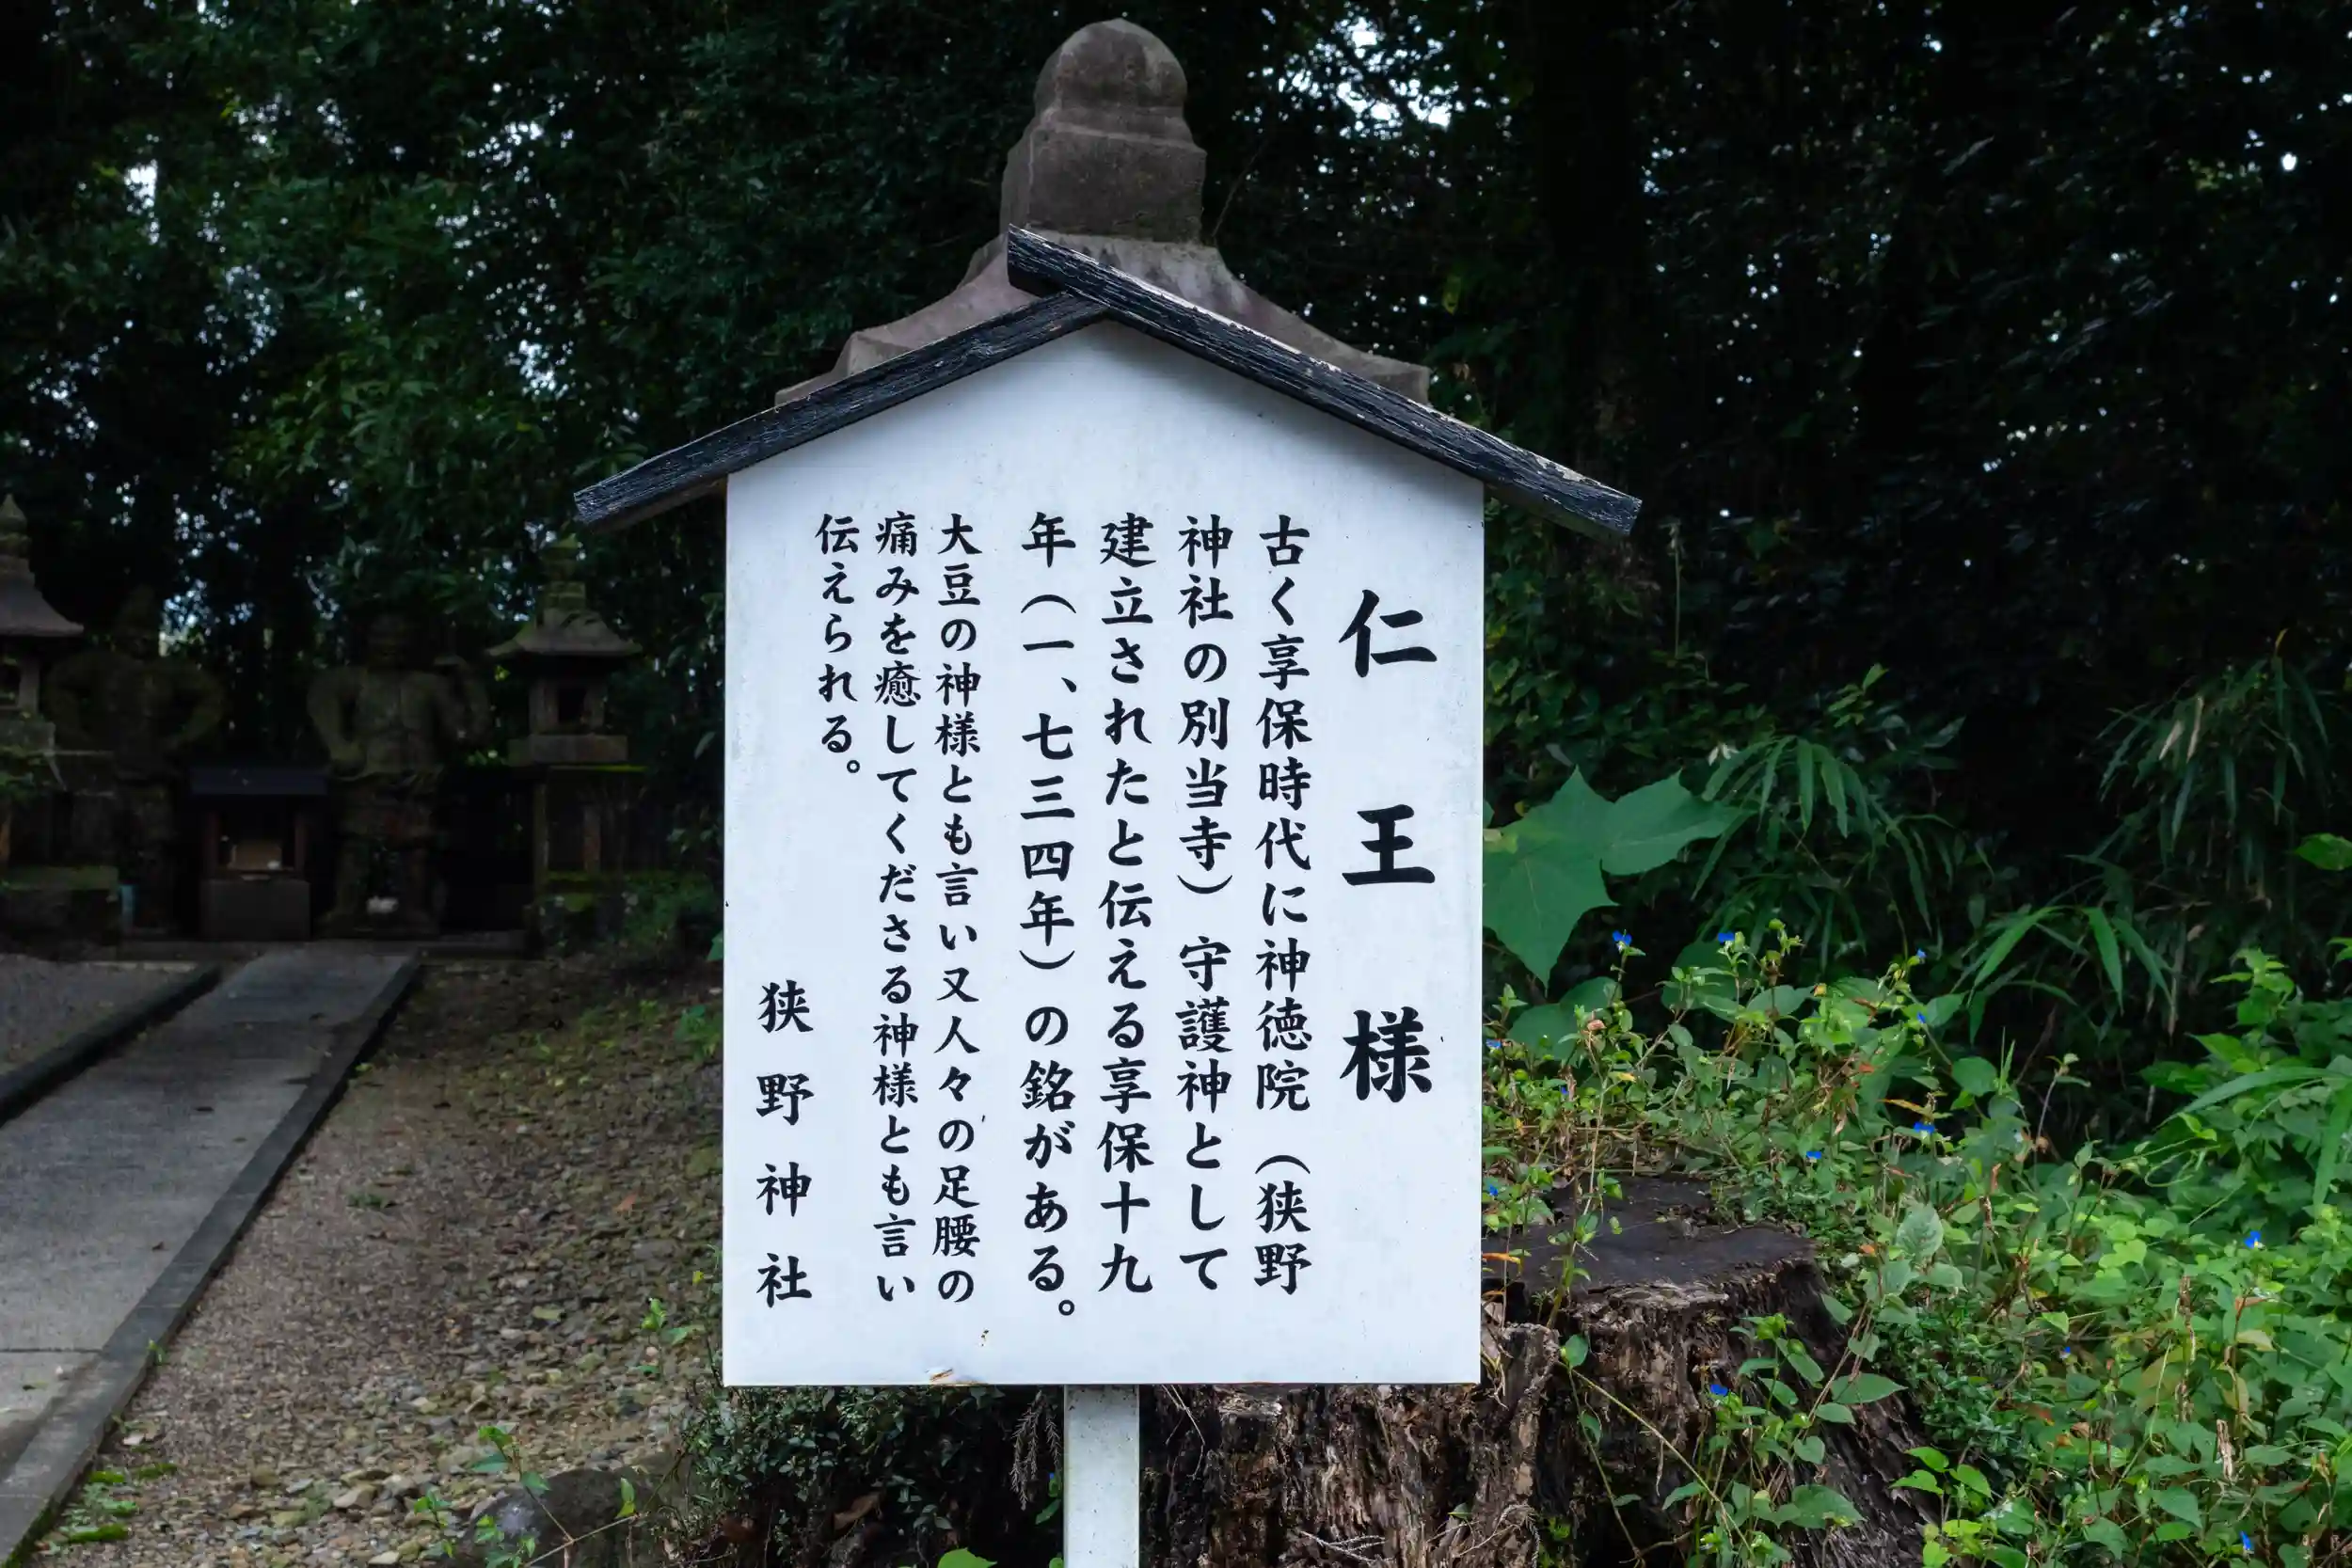 仁王様
古く享保時代に神徳院（狭野
神社の別当寺）守護神として
建立されたと伝える享保十九
年（一、七三四年）の銘がある。
大豆の神様とも言い又人々の足腰の
痛みを癒してくださる神様とも言い
伝えられる。
狭野神社